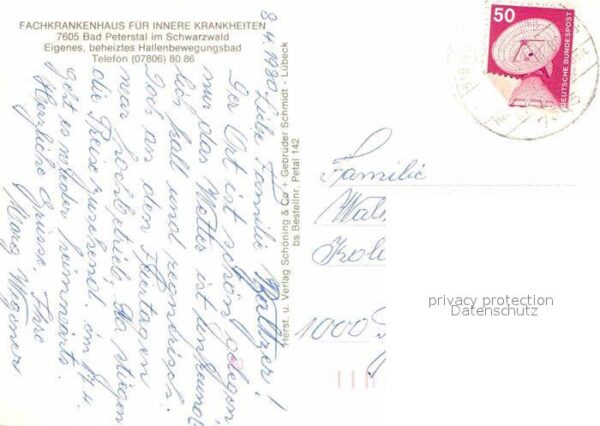 FACHKRANKENHAUS FÜR INNERE KRANKHEITEN
7605 Bad Peterstal im Schwarzwald
Eigenes, beheiztes Hallenbewegungsbad
Telefon (07806) 80 86
8.4.1980
Liebe Familie Baltzer!
Der Ort ist schön gelegen,
nur das Wetter ist unfreund-
lich kalt und regnerisch.
Doch an den Feiertagen
war Hochbetrieb, da stiegen
die Preise zusehend. Am 17.4.
geht es wieder heimwärts.
Herzliche Grüsse, Ihre
Marg. Wegener
Herst. u. Verlag Schöning & Co + Gebrüder Schmidt - Lübeck
bs Bestellnr. Petal 142
50
DEUTSCHE BUNDESPOST
Familie
1000
privacy protection
Datenschutz